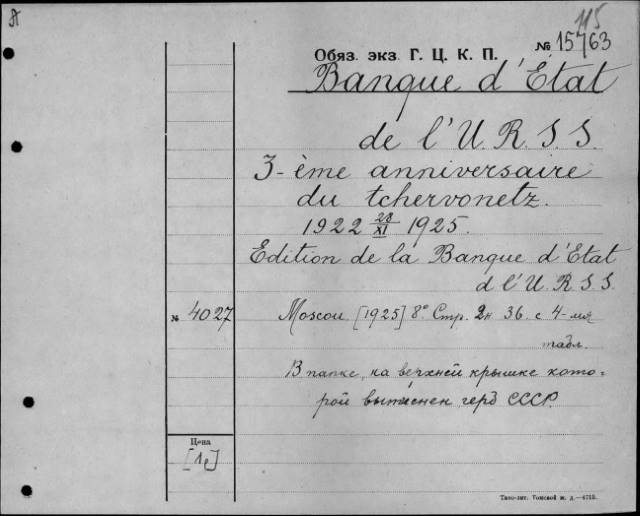 115
Обяз. экз. Г. Ц. К. П. № 15763
Banque d'État
de l'U. R. S. S.
3-ème anniversaire
du tchervonetz.
1922 28/XI 1925.
Edition de la Banque d'État
d l'U. R. S. S.
№ 4027
Moscou [1925] 8° Стр. 2н 36. с 4-мя
табл.
В папке, на верхней крышке кото-
рой вытиснен герб СССР.
Цена
Типо-лит. Томской ж. д.—4713.